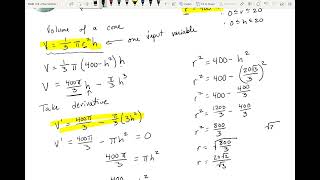 Volume of a cone
V = 1/3 πr²h ← one input variable
V = 1/3 π(400-h²)h
V = 400π/3 h - π/3 h³
Take derivative
V' = 400π/3 - π/3(3h²)
V' = 400π/3 - πh² = 0
400π/3 = πh²
0 ≤ h ≤ 20
r² = 400 - h²
r² = 400 - (20√3/3)²
r² = 400 - 400/3
r² = 1200/3 - 400/3
r² = 800/3
r = √(800/3)
r = 20√2/√3